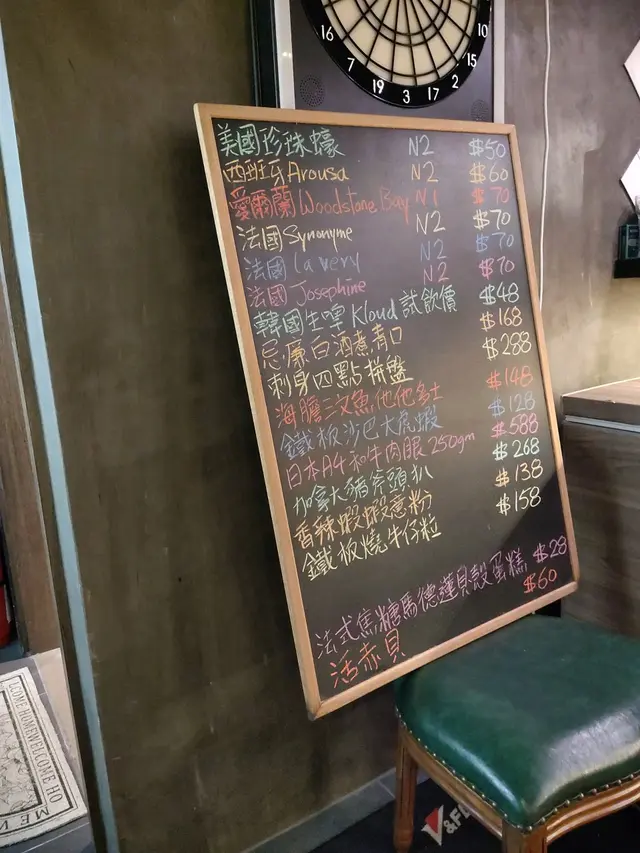 16
10
7
15
19
3
17
2
美國珍珠蠔 N2 $50
西班牙 Arousa N2 $60
愛爾蘭 Woodstone Bay N1 $70
法國 Synonyme N2 $70
法國 La very N2 $70
法國 Josephine N2 $70
韓國生啤 Kloud 試飲價 $48
忌廉白酒煮青口 $168
刺身四點拼盤 $288
海膽三文魚他他多士 $148
鐵板沙巴大虎蝦 $128
日本A4和牛肉眼 250gm $588
加拿大豬斧頭扒 $268
香辣蝦蝦意粉 $138
鐵板燒牛仔粒 $158
法式焦糖馬德蓮貝殼蛋糕 $28
活赤貝 $60